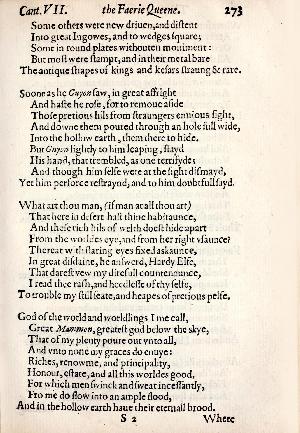 Cant. VII. the Faerie Queene. 273
Some others were new driuen, and distent
Into great Ingowes, and to wedges square;
Some in round plates withouten moniment:
But most were stampt, and in their metal bare
The antique shapes of kings and kesars straung & rare.
Soone as he Guyon saw, in great affright
And haste he rose, for to remoue aside
Those pretious hils from straungers enuious sight,
And downe them poured through an hole full wide,
Into the hollow earth, them there to hide.
But Guyon lightly to him leaping, stayd
His hand, that trembled, as one terrifyde;
And though him selfe were at the sight dismayd,
Yet him perforce restraynd, and to him doubtfull sayd.
What art thou man, (if man at all thou art)
That here in desert hast thine habitaunce,
And these rich hils of welth doest hide apart
From the worldes eye, and from her right vsaunce?
Thereat with staring eyes fixed askaunce,
In great disdaine, he answerd, Hardy Elfe,
That darest vew my direfull countenaunce,
I read thee rash, and heedlesse of thy selfe,
To trouble my still seate, and heapes of pretious pelfe.
God of the world and worldlings I me call,
Great Mammon, greatest god below the skye,
That of my plenty poure out vnto all,
And vnto none my graces do enuye:
Riches, renowme, and principality,
Honour, estate, and all this worldes good,
For which men swinck and sweat incessantly,
Fro me do flow into an ample flood,
And in the hollow earth haue their eternall brood.
S 2 Where